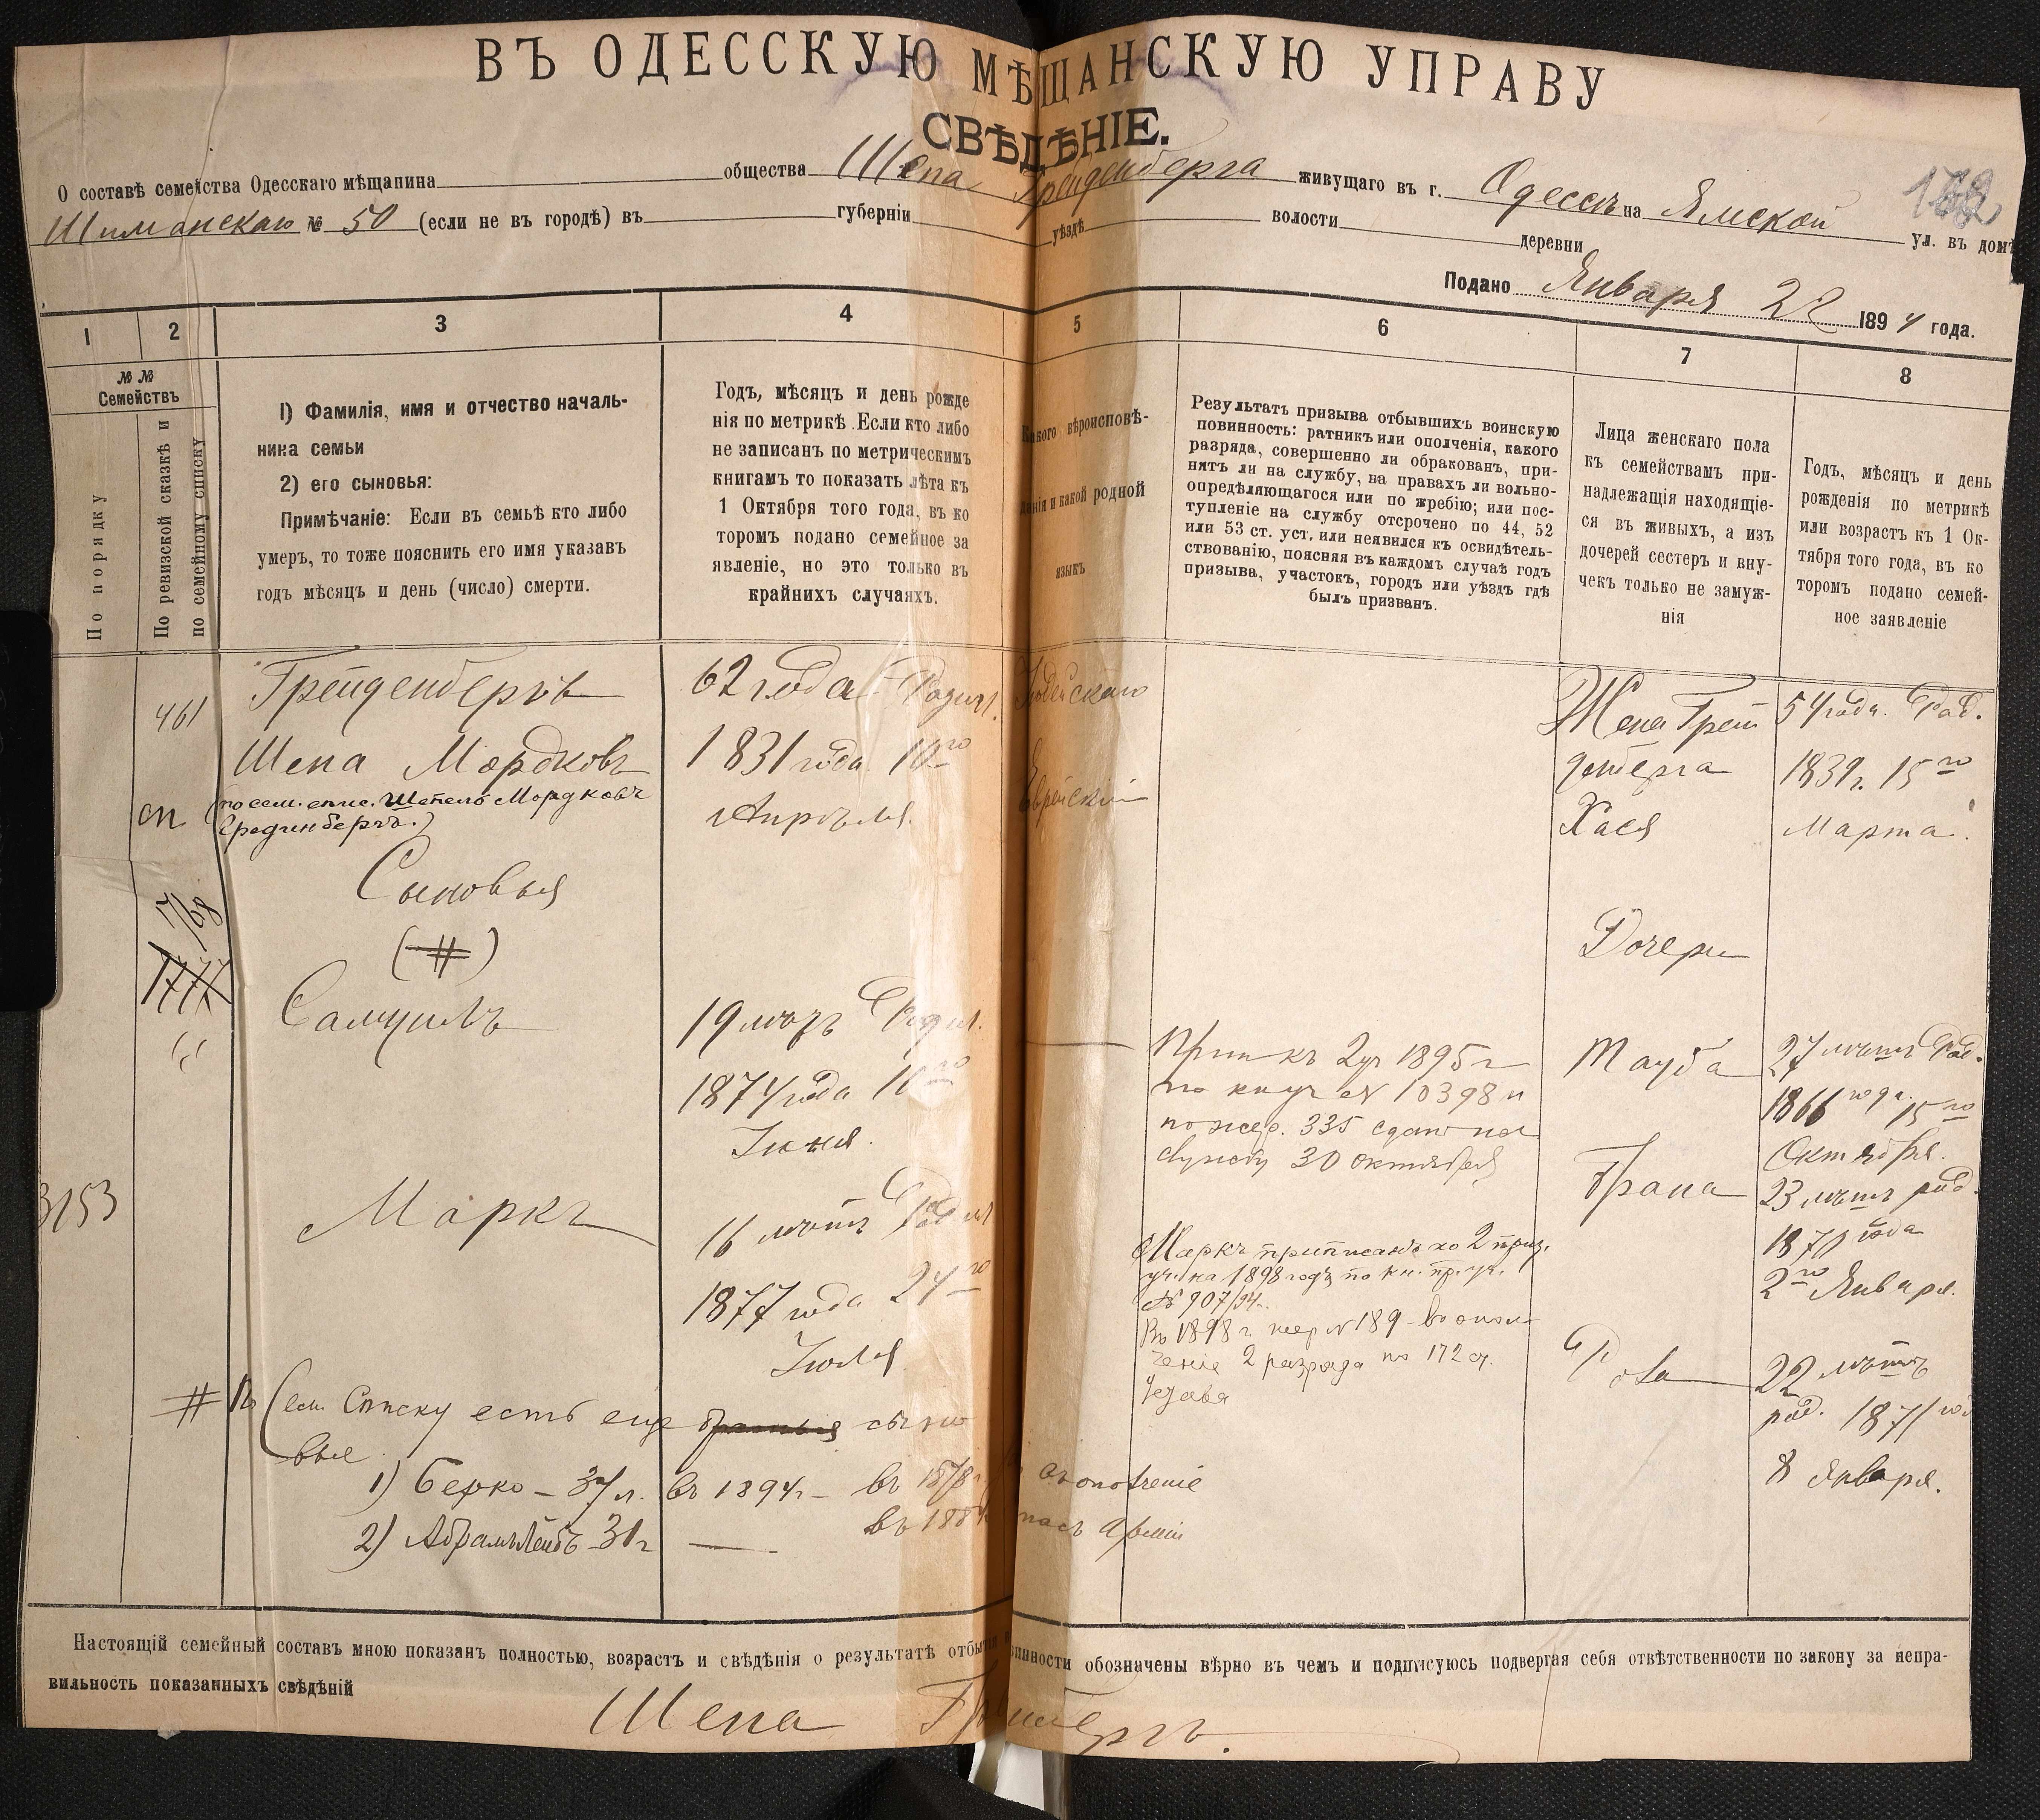 ВЪ ОДЕССКУЮ МѢЩАНСКУЮ УПРАВУ
СВѢДѢНІЕ.
О составѣ семейства Одесскаго мѣщанина общества Шепа Грейденберга живущаго въ г. Одессѣ на Ямской ул. въ домѣ
Шиманскаго № 50 (если не въ городѣ) въ губерніи уѣздѣ волости деревни
Подано Января 22 1894 года.
1 2 3 4 5 6 7 8
№ №
Семействъ
По порядку
По ревизской сказкѣ и
по семейному списку
1) Фамилія, имя и отчество началь-
ника семьи
2) его сыновья:
Примѣчаніе: Если въ семьѣ кто либо
умеръ, то тоже пояснить его имя указавъ
годъ мѣсяцъ и день (число) смерти.
Годъ, мѣсяцъ и день рожде
нія по метрикѣ. Если кто либо
не записанъ по метрическимъ
книгамъ то показать лѣта къ
1 Октября того года, въ ко
торомъ подано семейное за
явленіе, но это только въ
крайнихъ случаяхъ.
Какого вѣроисповѣ-
данія и какой родной
языкъ
Результатъ призыва отбывшихъ воинскую
повинность: ратникъ или ополченія, какого
разряда, совершенно ли обракованъ, при-
нятъ ли на службу, на правахъ ли вольно-
опредѣляющагося или по жребію; или пос-
тупленіе на службу отсрочено по 44, 52
или 53 ст. уст. или неявился къ освидѣтель-
ствованію, поясняя въ каждомъ случаѣ годъ
призыва, участокъ, городъ или уѣздъ гдѣ
былъ призванъ.
Лица женскаго пола
къ семействамъ при-
надлежащія находящіе-
ся въ живыхъ, а изъ
дочерей сестеръ и вну-
чекъ только не замуж-
нія
Годъ, мѣсяцъ и день
рожденія по метрикѣ
или возрастъ къ 1 Ок-
тября того года, въ ко
торомъ подано семей-
ное заявленіе
461
Грейденбергъ
Шепа Мордковъ
сп
(по сем. спис. Шепель Мордковъ
Грединбергъ.)
62 года Родил.
1831 года 10го
Апрѣля.
Іудейскаго
Еврейскій
Жена Грей
денберга
Хася
54 года. Род.
1839 г. 15го
Марта.
Сыновья
(#)
17/68
1777
Дочери
Самуилъ
19 лѣтъ Родил.
1874 года 10го
Іюня.
Прип къ 2 уч 1895 г
по книг № 10398 и
по жер. 335 сданъ на
службу 30 октября
Тауба
27 лѣтъ Род.
1866 года 15го
Октября.
3153
Маркъ
16 лѣтъ Родил
1877 года 24го
Іюля
Маркъ приписанъ ко 2 приз.
уч. на 1898 годъ по кн. пр. уч.
№ 907/94.
Въ 1898 г. жер № 189 - во опол
ченіе 2 разряда по 172 ст.
Устава
Грана
23 лѣтъ род.
1870 года
2го Января.
Роза
22 лѣтъ
род. 1871 год
8 Января.
# По сем. Списку есть еще братья сыно
вья
1) Берко - 37 л. въ 1894 г. - въ 1878 г. въ ополченіе
2) Абрамъ Лейбъ 31 г — въ 188 арміи
Настоящій семейный составъ мною показанъ полностью, возрастъ и свѣдѣнія о результатѣ отбытія повинности обозначены вѣрно въ чемъ и подписуюсь подвергая себя отвѣтственности по закону за непра-
вильность показанныхъ свѣдѣній
Шепа